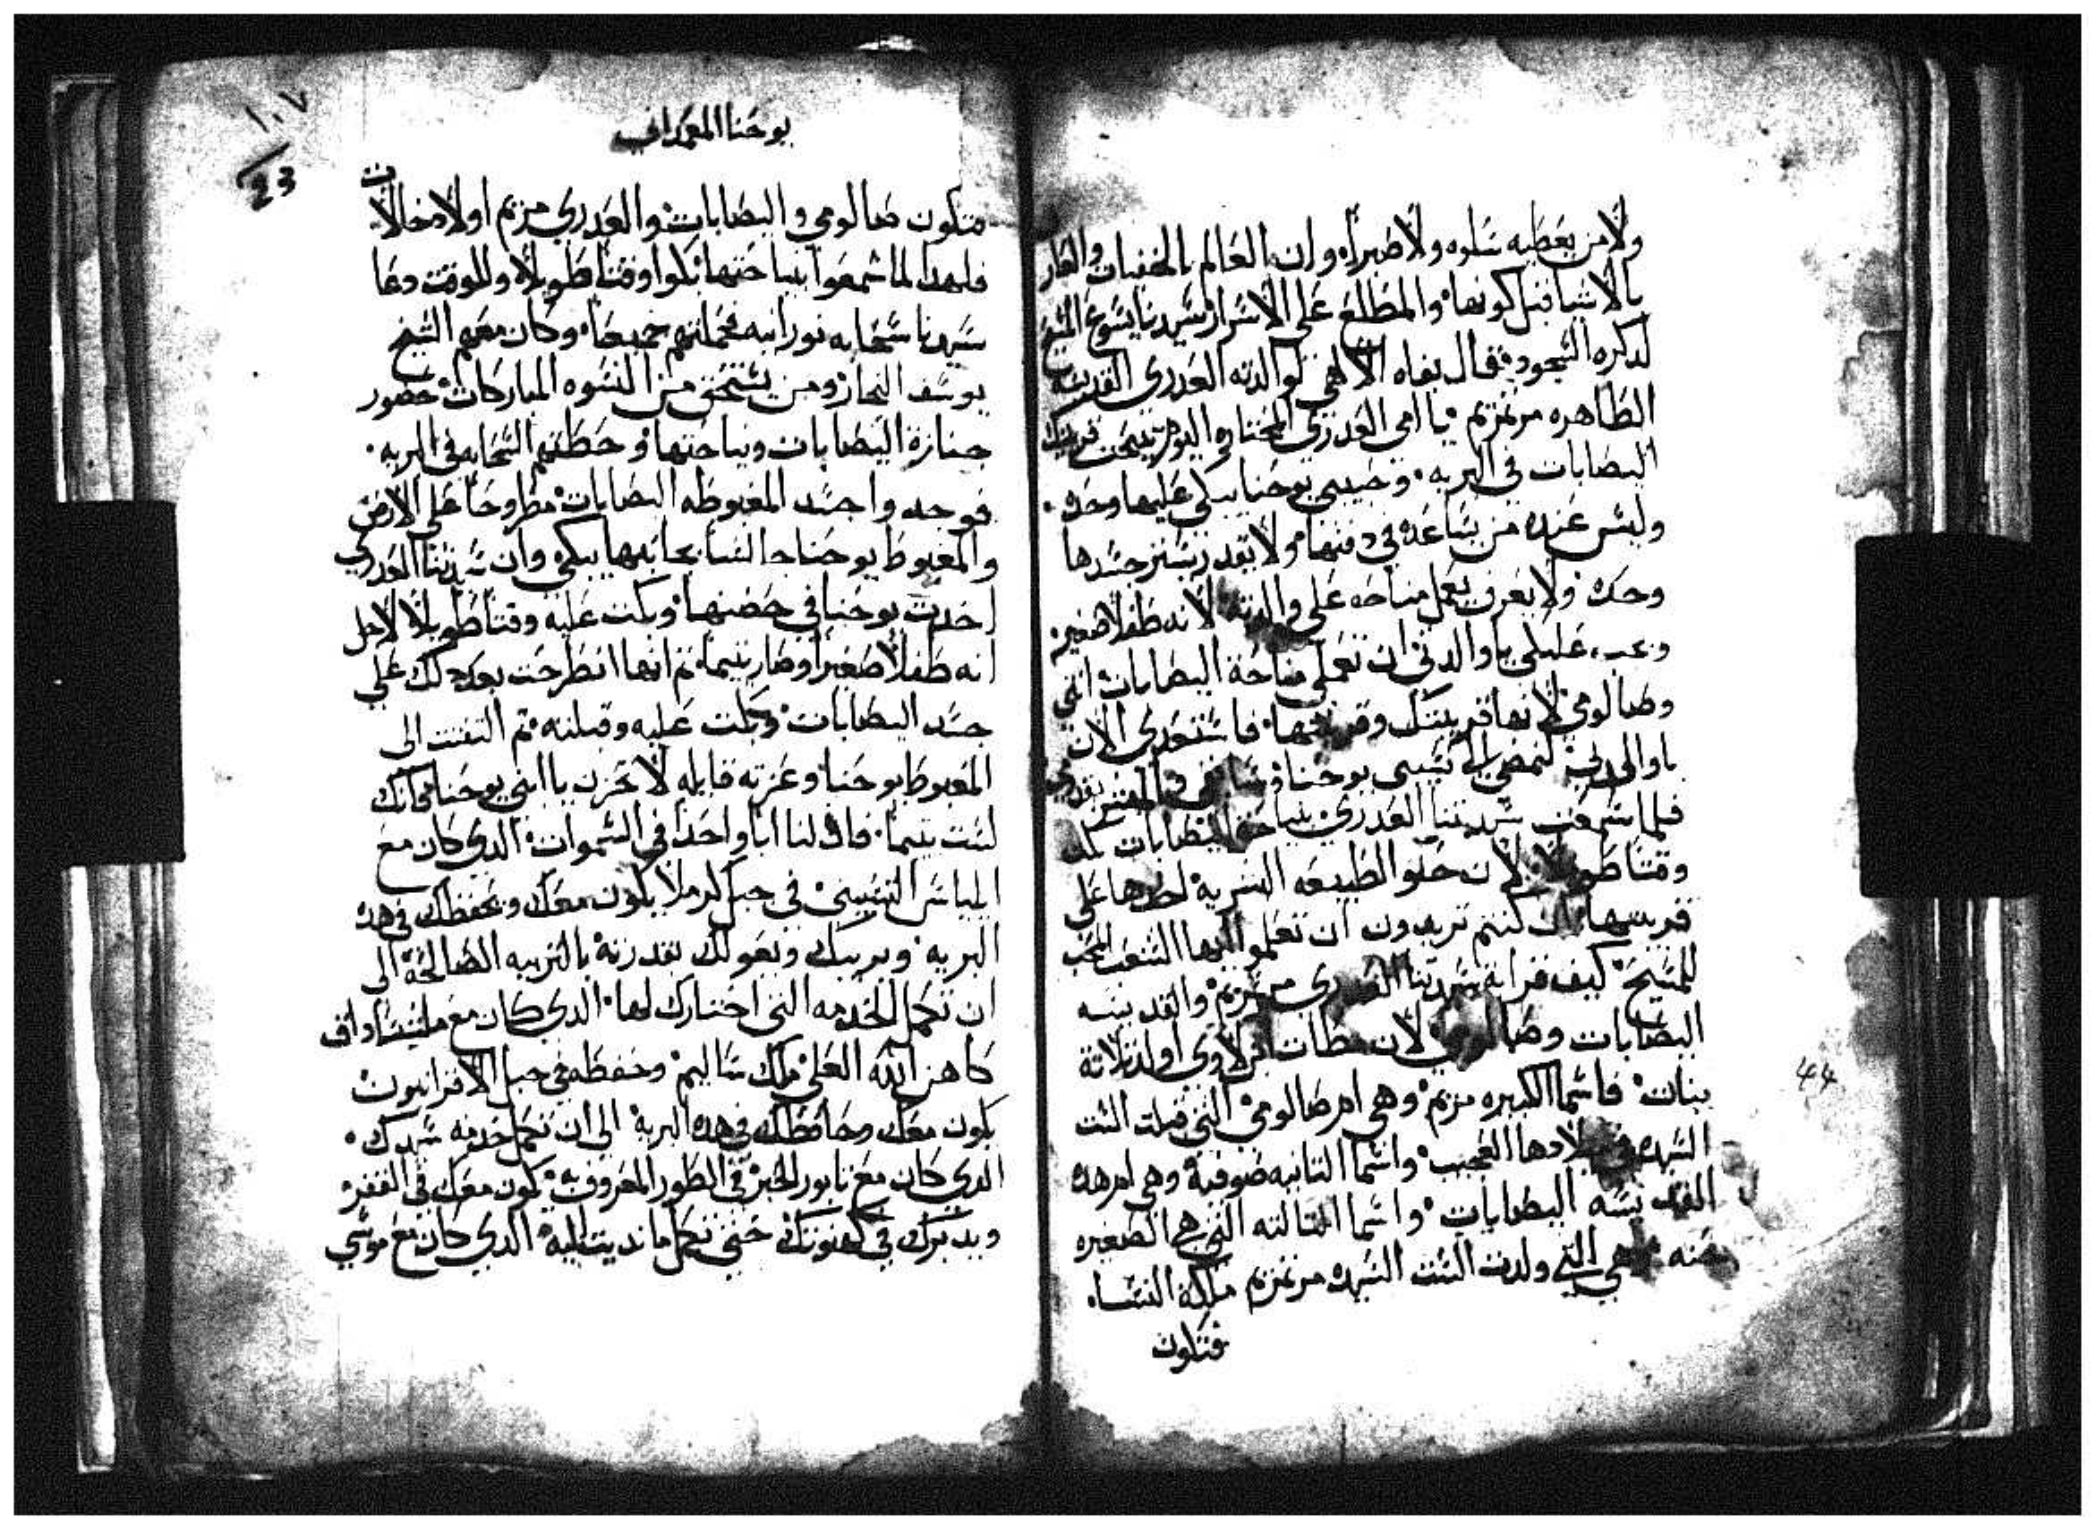 ولا من يعطيه سلوه ولا صبراً وان العالم بالخفيات والعار
بالاشيا قبل كونها والمطلع على الاسرار سيدنا يسوع المسيح
لذكره السجود فقال بفاه الالهي لوالدته العدرى القديسه
الطاهره مرتمريم يا امي العدرى المختاره اليوم تنيحت قريبتك
اليصابات في البريه وحبيبي يوحنا يبكي عليها وحده
وليس عنده من يساعده في دفنها ولا يقدر يستر جسدها
وحده ولا يعرف يعمل مناحه على والدته لانه طفلا صغير
عليكي يا والدتي ان تعملي مناحة اليصابات انتي
وصالومي لانها قريبتك فاستعدي الان
يا والدتي لنمضي الى نسيبي يوحنا
فلما سمعت سيدتنا العدرى بنياحة اليصابات بكت
وقتا طويلا لان حلو الطبيعه البشريه على
قريبتها ان كنتم تريدون ان تعلموا ايها الشعب المحب
للمسيح كيف قرابة سيدتنا العدرى مرتمريم والقديسه
اليصابات وصالومي لان اولد تلاتة
بنات فاسما الكبيره مريم وهي ام صالومي التي قبلت الست
السيده في ميلادها العجيب واسما التانيه صوفية وهي ام هده
القديسه اليصابات واسما التالته التي هي الصغيره
حنه هي التي ولدت الست السيده مرتمريم ملكة النسا
فتكون
يوحنا المعمداني
١٠٧
23
فتكون صالومي واليصابات والعدرى مريم اولاد خالات
فلهدا لما سمعوا بنياحتها بكوا وقتا طويلا وللوقت دعا
سيدنا سحابه نورانيه فحملتهم جميعا وكان معهم الشيخ
يوسف النجار ومن يستحق من النسوه المباركات حضور
جنازة اليصابات ونياحتها وحطتهم السحابه في البريه
فوجدوا جسد المغبوطه اليصابات مطروحا على الارض
والمغبوط يوحنا جالسا بجانبها يبكي وان سيدتنا العدرى
اخدت يوحنا في حضنها وبكت عليه وقتا طويلا لاجل
انه طفلا صغيرا وصار يتيما تم انها انطرحت بعد دلك على
جسد اليصابات وبكت عليه وقبلته تم التفتت الى
المغبوط يوحنا وعزته قايله لا تحزن يا ابني يوحنا فانك
لست يتيما فان لنا ابا واحدا في السموات الدي كان مع
الياس التسبيني في جبل كرملا يكون معك ويحفظك في هده
البريه ويربيك ويعولك بقدرته بالتربيه الصالحة الى
ان تكمل الخدمه التي اختارك لها الدي كان مع ملشيساداق
كاهن الله العلي ملك ساليم وحفظه في جبل الاقرانيون
يكون معك وحافظك في هده البريه الى ان تكمل خدمه سيدك
الدي كان مع تابور الخبر في الطور المعروف به يكون معك في القفر
ويدبرك في كهنوتك حتى تكمل ما نديت اليه الدي كان مع موسي
44